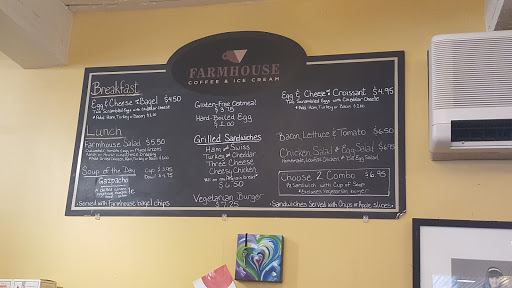 FARMHOUSE
COFFEE & ICE CREAM
Breakfast
Egg & Cheese Bagel $4.50
Two Scrambled Eggs with Cheddar Cheese
Add Ham, Turkey or Bacon $1.00
Lunch
Farmhouse Salad $5.50
Add Grilled Chicken, Ham, Turkey or Bacon
Soup of the Day Cup $3.95
Bowl $4.95
Gazpacho
Served with Farmhouse bagel chips
Gluten-Free Oatmeal
$3.75
Hard-Boiled Egg
$1.00
Grilled Sandwiches
Ham and Swiss
Turkey and Cheddar
Three Cheese
Cheesy Chicken
$6.50
Vegetarian Burger
$7.25
Egg & Cheese Croissant $4.95
Two Scrambled Eggs with Cheddar Cheese
Add Ham, Turkey or Bacon $1.00
Bacon, Lettuce & Tomato $6.50
Chicken Salad or Egg Salad $6.95
Choose 2 Combo $6.95
1/2 Sandwich with Cup of Soup
Sandwiches Served with Chips or Apple slices